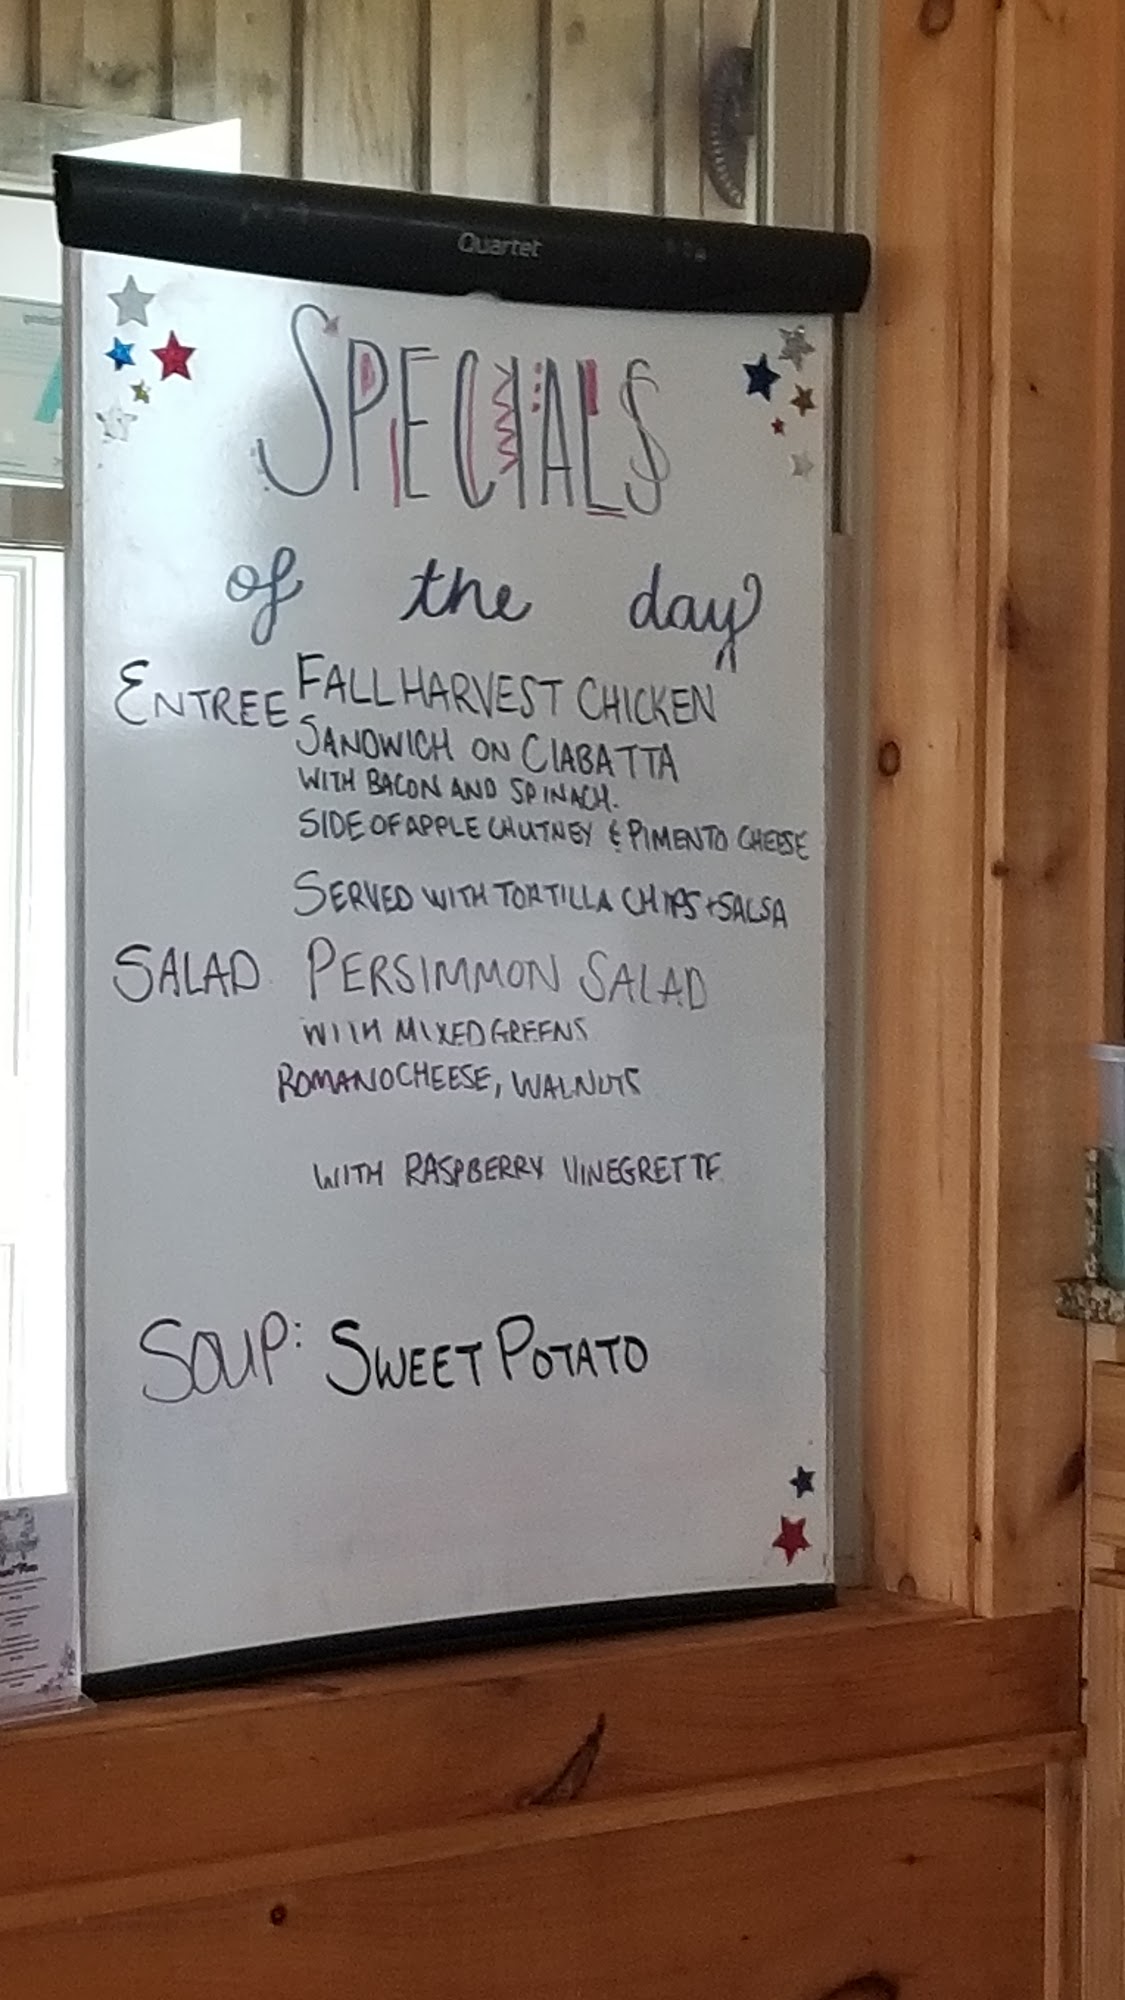 Quartet
SPECIALS
of the day
ENTREE FALL HARVEST CHICKEN
SANDWICH ON CIABATTA
WITH BACON AND SPINACH.
SIDE OF APPLE CHUTNEY & PIMENTO CHEESE
SERVED WITH TORTILLA CHIPS + SALSA
SALAD PERSIMMON SALAD
WITH MIXED GREENS
ROMANO CHEESE, WALNUTS
WITH RASPBERRY VINEGRETTE
SOUP: SWEET POTATO